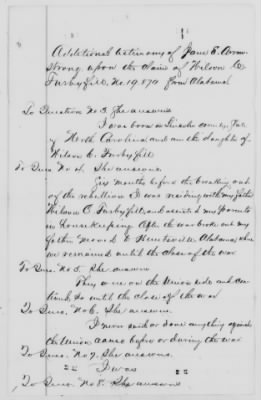 Additional testimony of Jane E. Arm-
strong upon the claim of Wilson C
Furbyfill, No. 19,874 from Alabama
To Question No 3. She answers
I was born in Lincoln county, State
of North Carolina and am the daughter of
Wilson C. Furbyfill
To Ques. No 4. She answers.
Six months before the breaking out
of the rebellion I was residing with my father
Wilson C. Furbyfill, and assisted my parents
in housekeeping. After the war broke out my
father moved to Huntsville Alabama, where
we remained until the close of the war
To Ques. No 5. She answers
They were on the Union side and con-
tinued so until the close of the war
To Ques. No 6. She answers
I never said or done anything against
the Union cause before or during the war
To Ques. No 7. She answers.
" " I was " "
To Ques. No 8. She answers